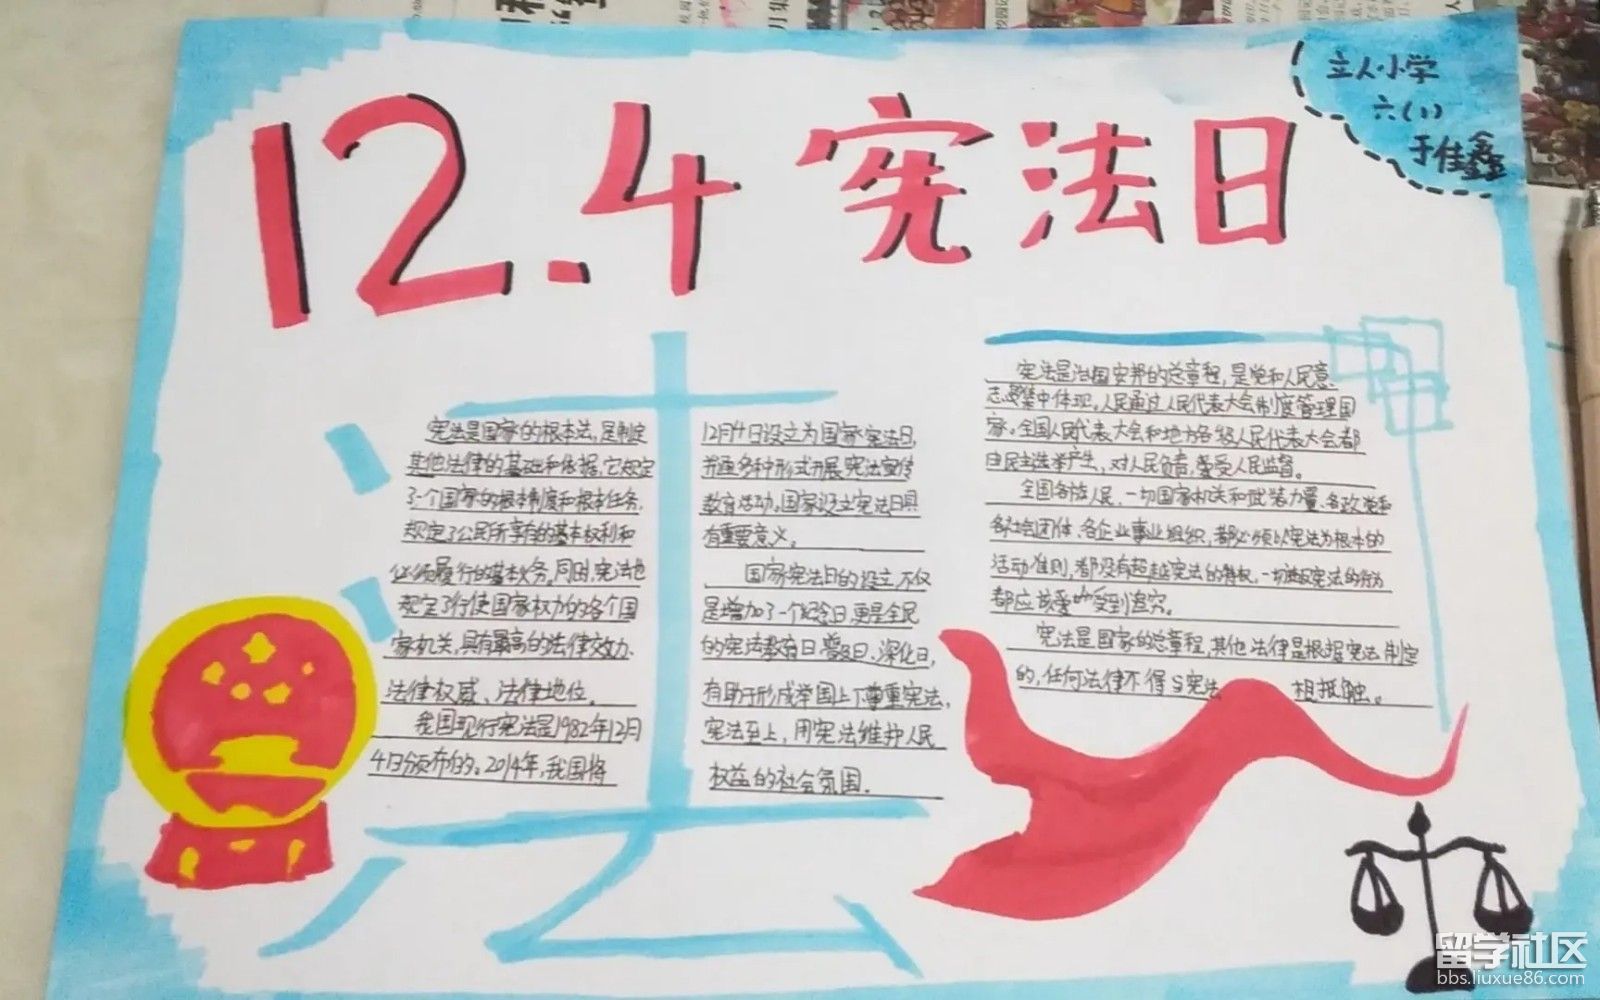 12.4 宪法日
立人小学
六(1)
于佳鑫
宪法是国家的根本法,是制定
其他法律的基础和依据。它规定
了一个国家的根本制度和根本任务,
规定了公民所享有的基本权利和
必须履行的基本义务。同时,宪法也
规定了行使国家权力的各个国
家机关,具有最高的法律效力、
法律权威、法律地位。
我国现行宪法是1982年12月
4日颁布的。2014年,我国将
12月4日设立为国家宪法日,
并通多种形式开展宪法宣传
教育活动。国家设立宪法日具
有重要意义。
国家宪法日的设立,不仅
是增加了一个纪念日,更是全民
的宪法教育日、普及日、深化日,
有助于形成举国上下尊重宪法、
宪法至上、用宪法维护人民
权益的社会氛围。
宪法是治国安邦的总章程,是党和人民意
志集中体现。人民通过人民代表大会制度管理国
家。全国人民代表大会和地方各级人民代表大会都
由民主选举产生,对人民负责,受人民监督。
全国各族人民、一切国家机关和武装力量、各政党和
各社会团体、各企业事业组织,都必须以宪法为根本的
活动准则,都没有超越宪法的特权,一切违反宪法的行为
都应该受到追究。
宪法是国家的总章程,其他法律是根据宪法制定
的,任何法律不得与宪法 相抵触。
留学社区
bbs.liuxue86.com